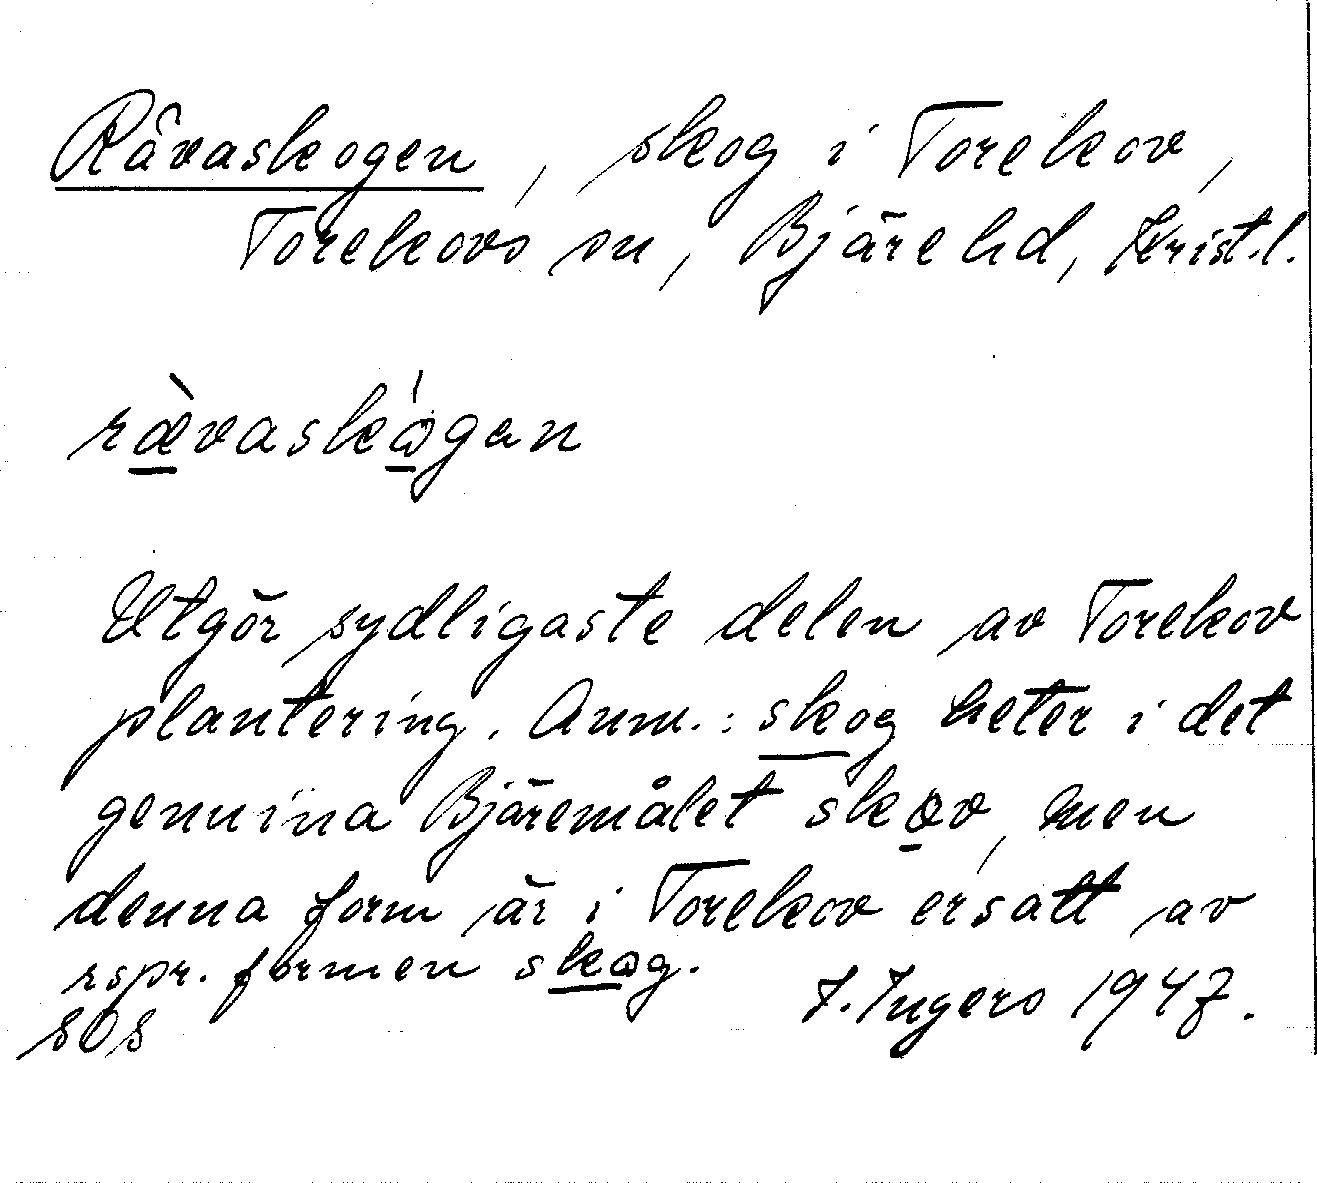 Råvaskogen, skog i Torekov,
Torekovs sn, Bjäre hd, Krist.l.
rævaskogan
Utgör sydligaste delen av Torekov
plantering. Anm.: skog heter i det
genuina Bjäremålet skov, men
denna form är i Torekov ersatt av
rspr. formen skog.
I. Ingers 1947.
SOS